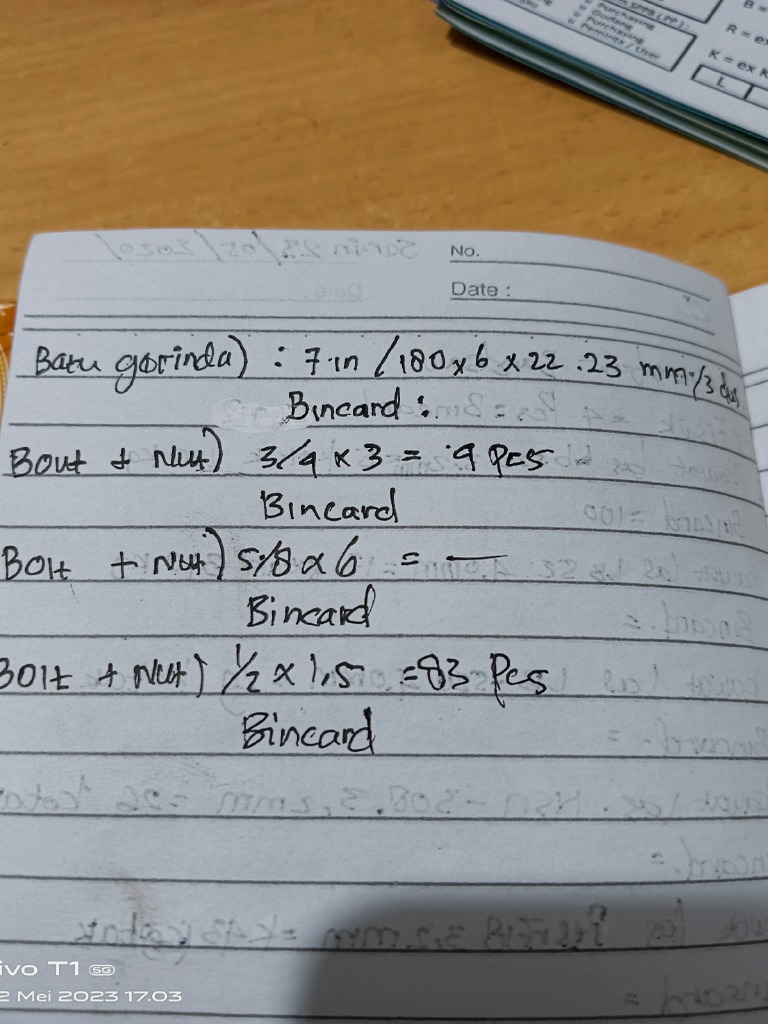 SPPB (PP) :
Purchasing
Gudang
Purchasing
Peminta / User
B =
R = ex
K = ex K
L
No.
Date :
Batu gorinda) : 7 in / 180 x 6 x 22.23 mm / 3 dus
Bincard :
Bout + Nut) 3/4 x 3 = 9 Pcs
Bincard
Bolt + Nut) 5/8 x 6 = —
Bincard
Bolt + Nut) 1/2 x 1,5 = 83 Pcs
Bincard
ivo T1 5G
2 Mei 2023 17.03